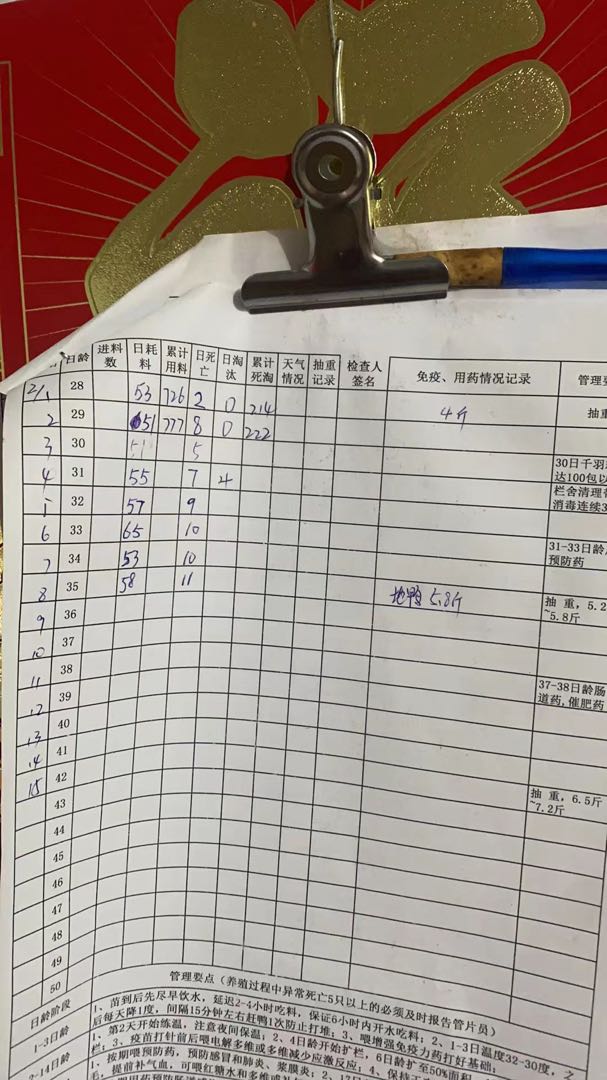 日龄 进料数 日耗料 累计用料 日死亡 日淘汰 累计死淘 天气情况 抽重记录 检查人签名 免疫、用药情况记录 管理要
2/1 28 53 726 2 0 214 4斤 抽重
2 29 651 777 8 0 222
3 30 51 5 30日千羽
达100包以
4 31 55 7 4 栏舍清理
消毒连续3
5 32 57 9
6 33 65 10 31-33日龄
预防药
7 34 53 10
8 35 58 11 地鸭5.8斤 抽重,5.2
~5.8斤
9 36
10 37
11 38 37-38日龄肠
道药,催肥药
12 39
13 40
14 41
15 42 抽重,6.5斤
~7.2斤
43
44
45
46
47
48
49
50
管理要点(养殖过程中异常死亡5只以上的必须及时报告管片员)
日龄阶段
1-3日龄 1、苗到后先尽早饮水,延迟2-4小时吃料,保证6小时内开水吃料;2、1-3日温度32-30度,之
后每天降1度,间隔15分钟左右赶鸭1次防止打堆;3、喂增强免疫力药打好基础;
2-14日龄 1、第2天开始练温,注意夜间保温;2、4日龄开始扩栏,6日龄扩至50%面积;
栏;3、疫苗打针前后喂电解多维或多维减少应激反应;4、保持
1、按期喂预防药,预防感冒和肺炎、浆膜炎;2、17日
提前补气血,可喂红糖水和多维